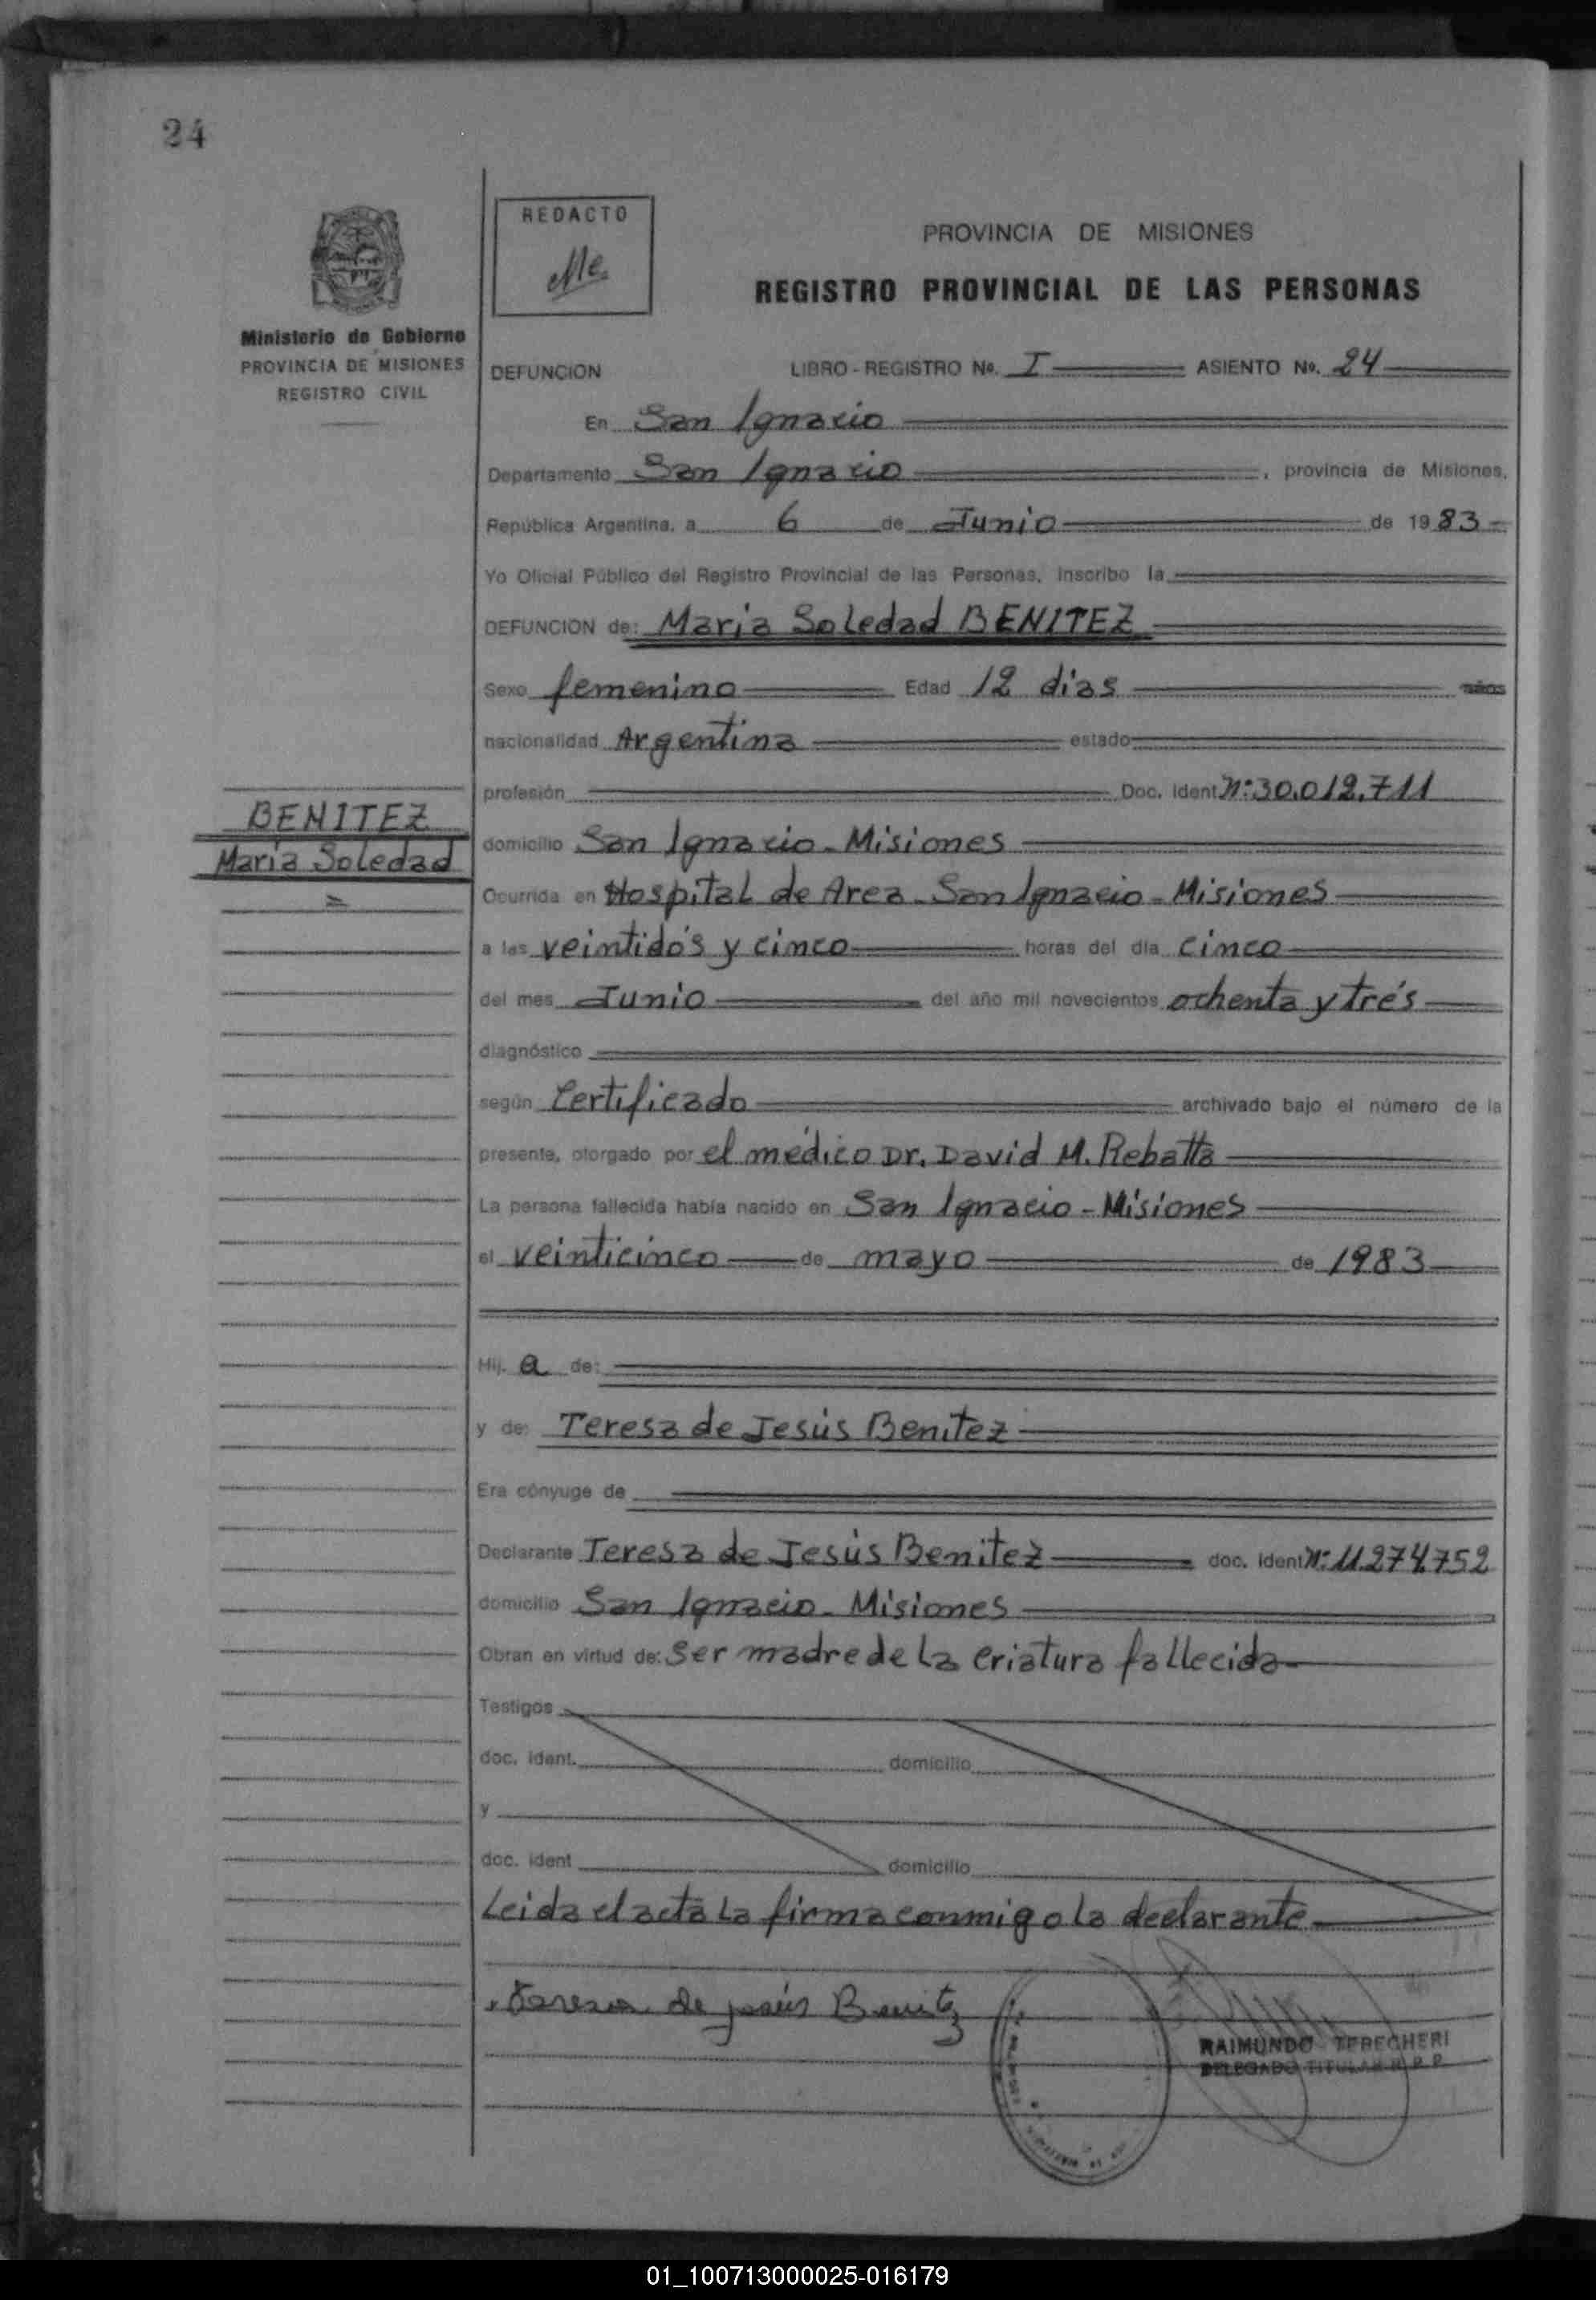 24
Ministerio de Gobierno
PROVINCIA DE MISIONES
REGISTRO CIVIL
REDACTO
PROVINCIA DE MISIONES
REGISTRO PROVINCIAL DE LAS PERSONAS
DEFUNCION LIBRO - REGISTRO No. I ASIENTO No. 24
En San Ignacio
Departamento San Ignacio, provincia de Misiones.
República Argentina, a 6 de Junio de 1983
Yo Oficial Público del Registro Provincial de las Personas, inscribo la
DEFUNCION de: Maria Soledad BENITEZ
Sexo femenino Edad 12 dias años
nacionalidad Argentina estado
profesión Doc. Ident Nº: 30.012.711
BENITEZ
Maria Soledad
domicilio San Ignacio - Misiones
Ocurrida en Hospital de Area - San Ignacio - Misiones
a las veintidós y cinco horas del día cinco
del mes Junio del año mil novecientos ochenta y trés
diagnóstico
según Certificado archivado bajo el número de la
presente, otorgado por el médico Dr. David M. Rebatta
La persona fallecida había nacido en San Ignacio - Misiones
el veinticinco de mayo de 1983
Hij. a de:
y de: Teresa de Jesús Benitez
Era cónyuge de
Declarante Teresa de Jesús Benitez doc. ident Nº: 11.274.752
domicilio San Ignacio - Misiones
Obran en virtud de: Ser madre de la criatura fallecida
Testigos
doc. ident. domicilio
y
doc. ident domicilio
Leida el acta la firma conmigo la declarante
Teresa de jesús Benitez
RAIMUNDO TERECHERI
DELEGADO TITULAR R. P. P.
01_100713000025-016179